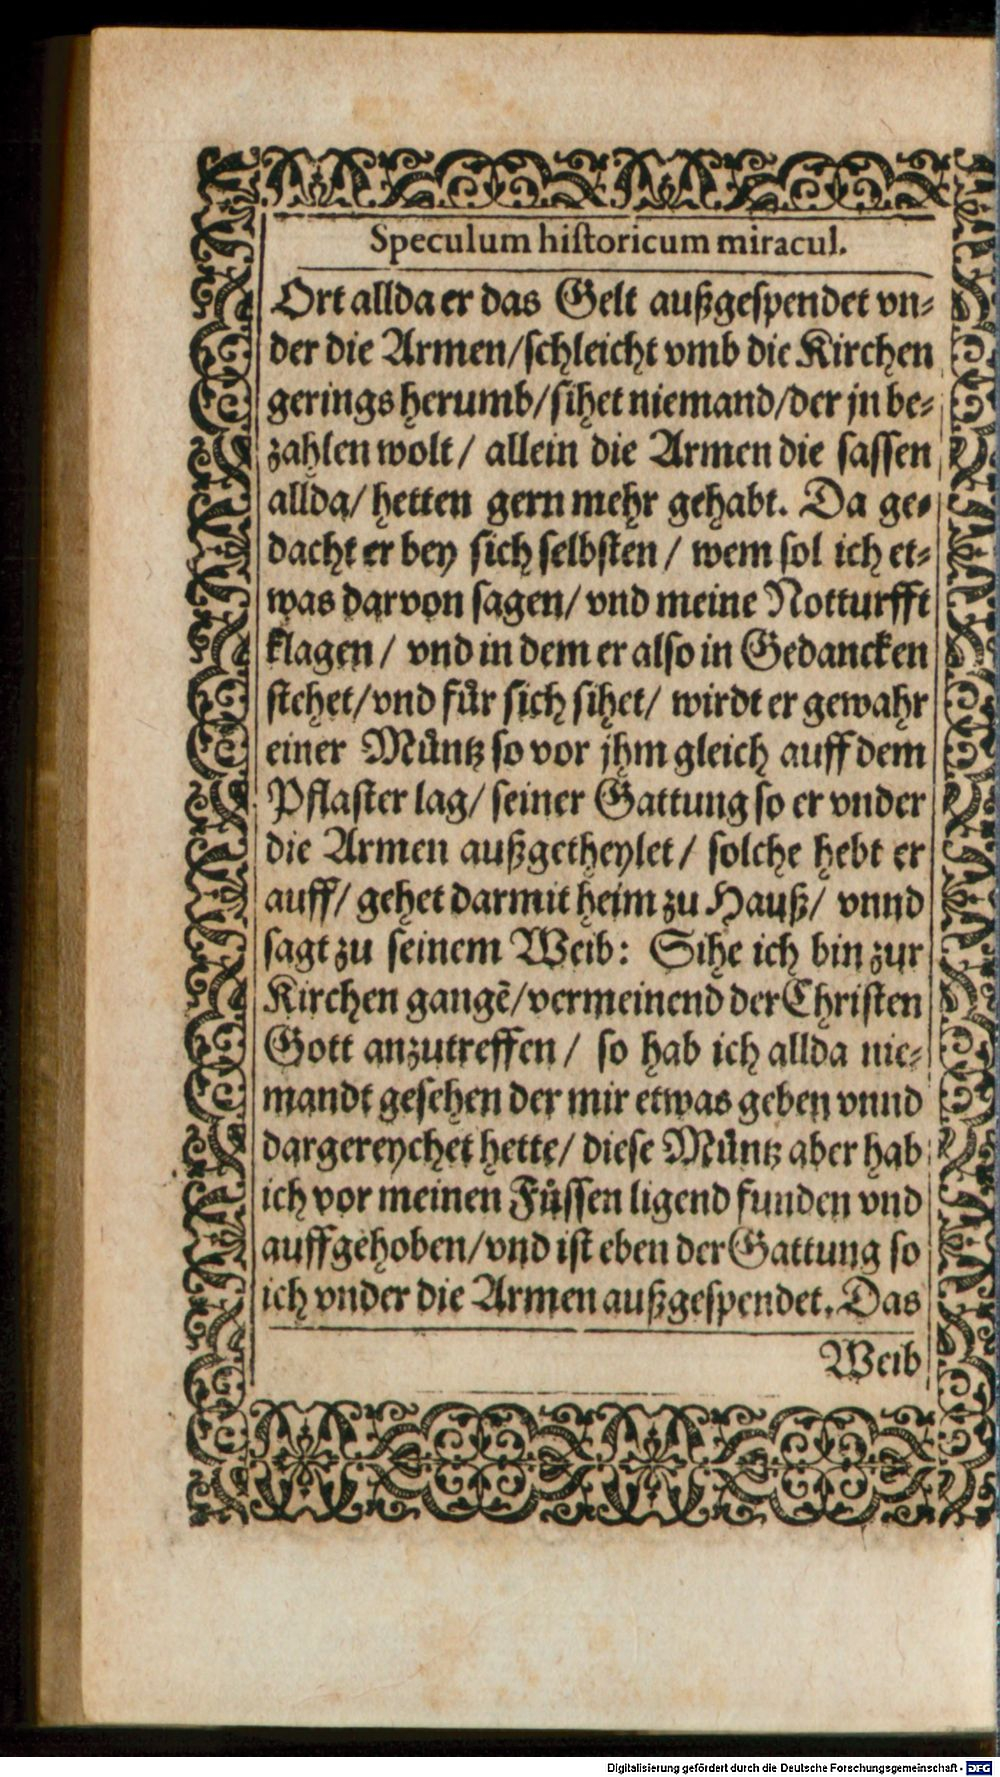 Speculum historicum miracul.
Ort allda er das Gelt außgespendet vn-
der die Armen/schleicht vmb die Kirchen
gerings herumb/sihet niemand/der jn be-
zahlen wolt/ allein die Armen die sassen
allda/ hetten gern mehr gehabt. Da ge-
dacht er bey sich selbsten / wem sol ich et-
was darvon sagen/ vnd meine Notturfft
klagen / vnd in dem er also in Gedancken
stehet/vnd fuͤr sich sihet/ wirdt er gewahr
einer Muͤntz so vor jhm gleich auff dem
Pflaster lag/ seiner Gattung so er vnder
die Armen außgetheylet / solche hebt er
auff/ gehet darmit heim zu Hauß/ vnnd
sagt zu seinem Weib: Sihe ich bin zur
Kirchen gangẽ/vermeinend der Christen
Gott anzutreffen / so hab ich allda nie-
mandt gesehen der mir etwas geben vnnd
dargereychet hette/ diese Muͤntz aber hab
ich vor meinen Fuͤssen ligend funden vnd
auffgehoben/vnd ist eben der Gattung so
ich vnder die Armen außgespendet. Das
Weib
Digitalisierung gefördert durch die Deutsche Forschungsgemeinschaft - DFG